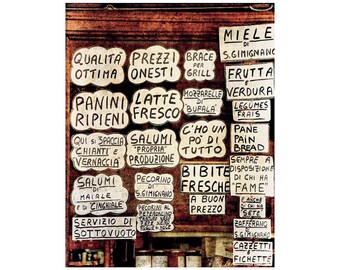 QUALITÀ
OTTIMA
PREZZI
ONESTI
BRACE
PER
GRILL
MIELE
DI
S.GIMIGNANO
PANINI
RIPIENI
LATTE
FRESCO
MOZZARELLE
DI
BUFALA
FRUTTA
E
VERDURA
LEGUMES
FRAIS
QUI SI SPACCIA
CHIANTI E
VERNACCIA
SALUMI
"PROPRIA"
PRODUZIONE
C'HO UN
PO' DI
TUTTO
PANE
PAIN
BREAD
SALUMI
DI
MAIALE
E DI CINGHIALE
PECORINO
DI
S.GIMIGNANO
BIBITE
FRESCHE
A BUON
PREZZO
SEMPRE A
DISPOSIZIONE
DI CHI HA
"FAME"
E ANCHE
DI CHI HA
SETE
SERVIZIO DI
SOTTOVUOTO
PECORINI AL
PEPERONCINO
ZAFFERANO
S.GIMIGNANO
CAZZETTI
E
FICHETTE